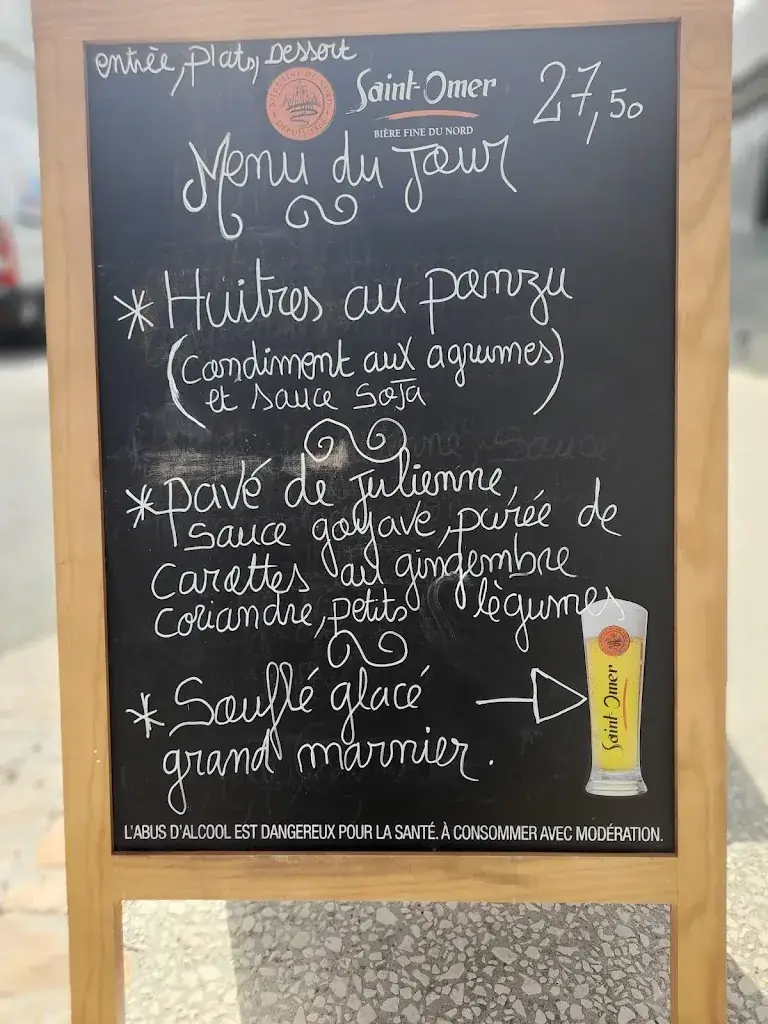 entrée, plats, Dessert
BIÈRE FINE DU NORD
DEPUIS 1866
Saint-Omer
BIÈRE FINE DU NORD
27,50
Menu du Jour
* Huitres au ponzu
(condiment aux agrumes)
et sauce soja
* pavé de julienne,
sauce goyave, purée de
carottes au gingembre
coriandre, petits légumes
* Soufflé glacé
grand marnier.
Saint-Omer
L'ABUS D'ALCOOL EST DANGEREUX POUR LA SANTÉ. À CONSOMMER AVEC MODÉRATION.